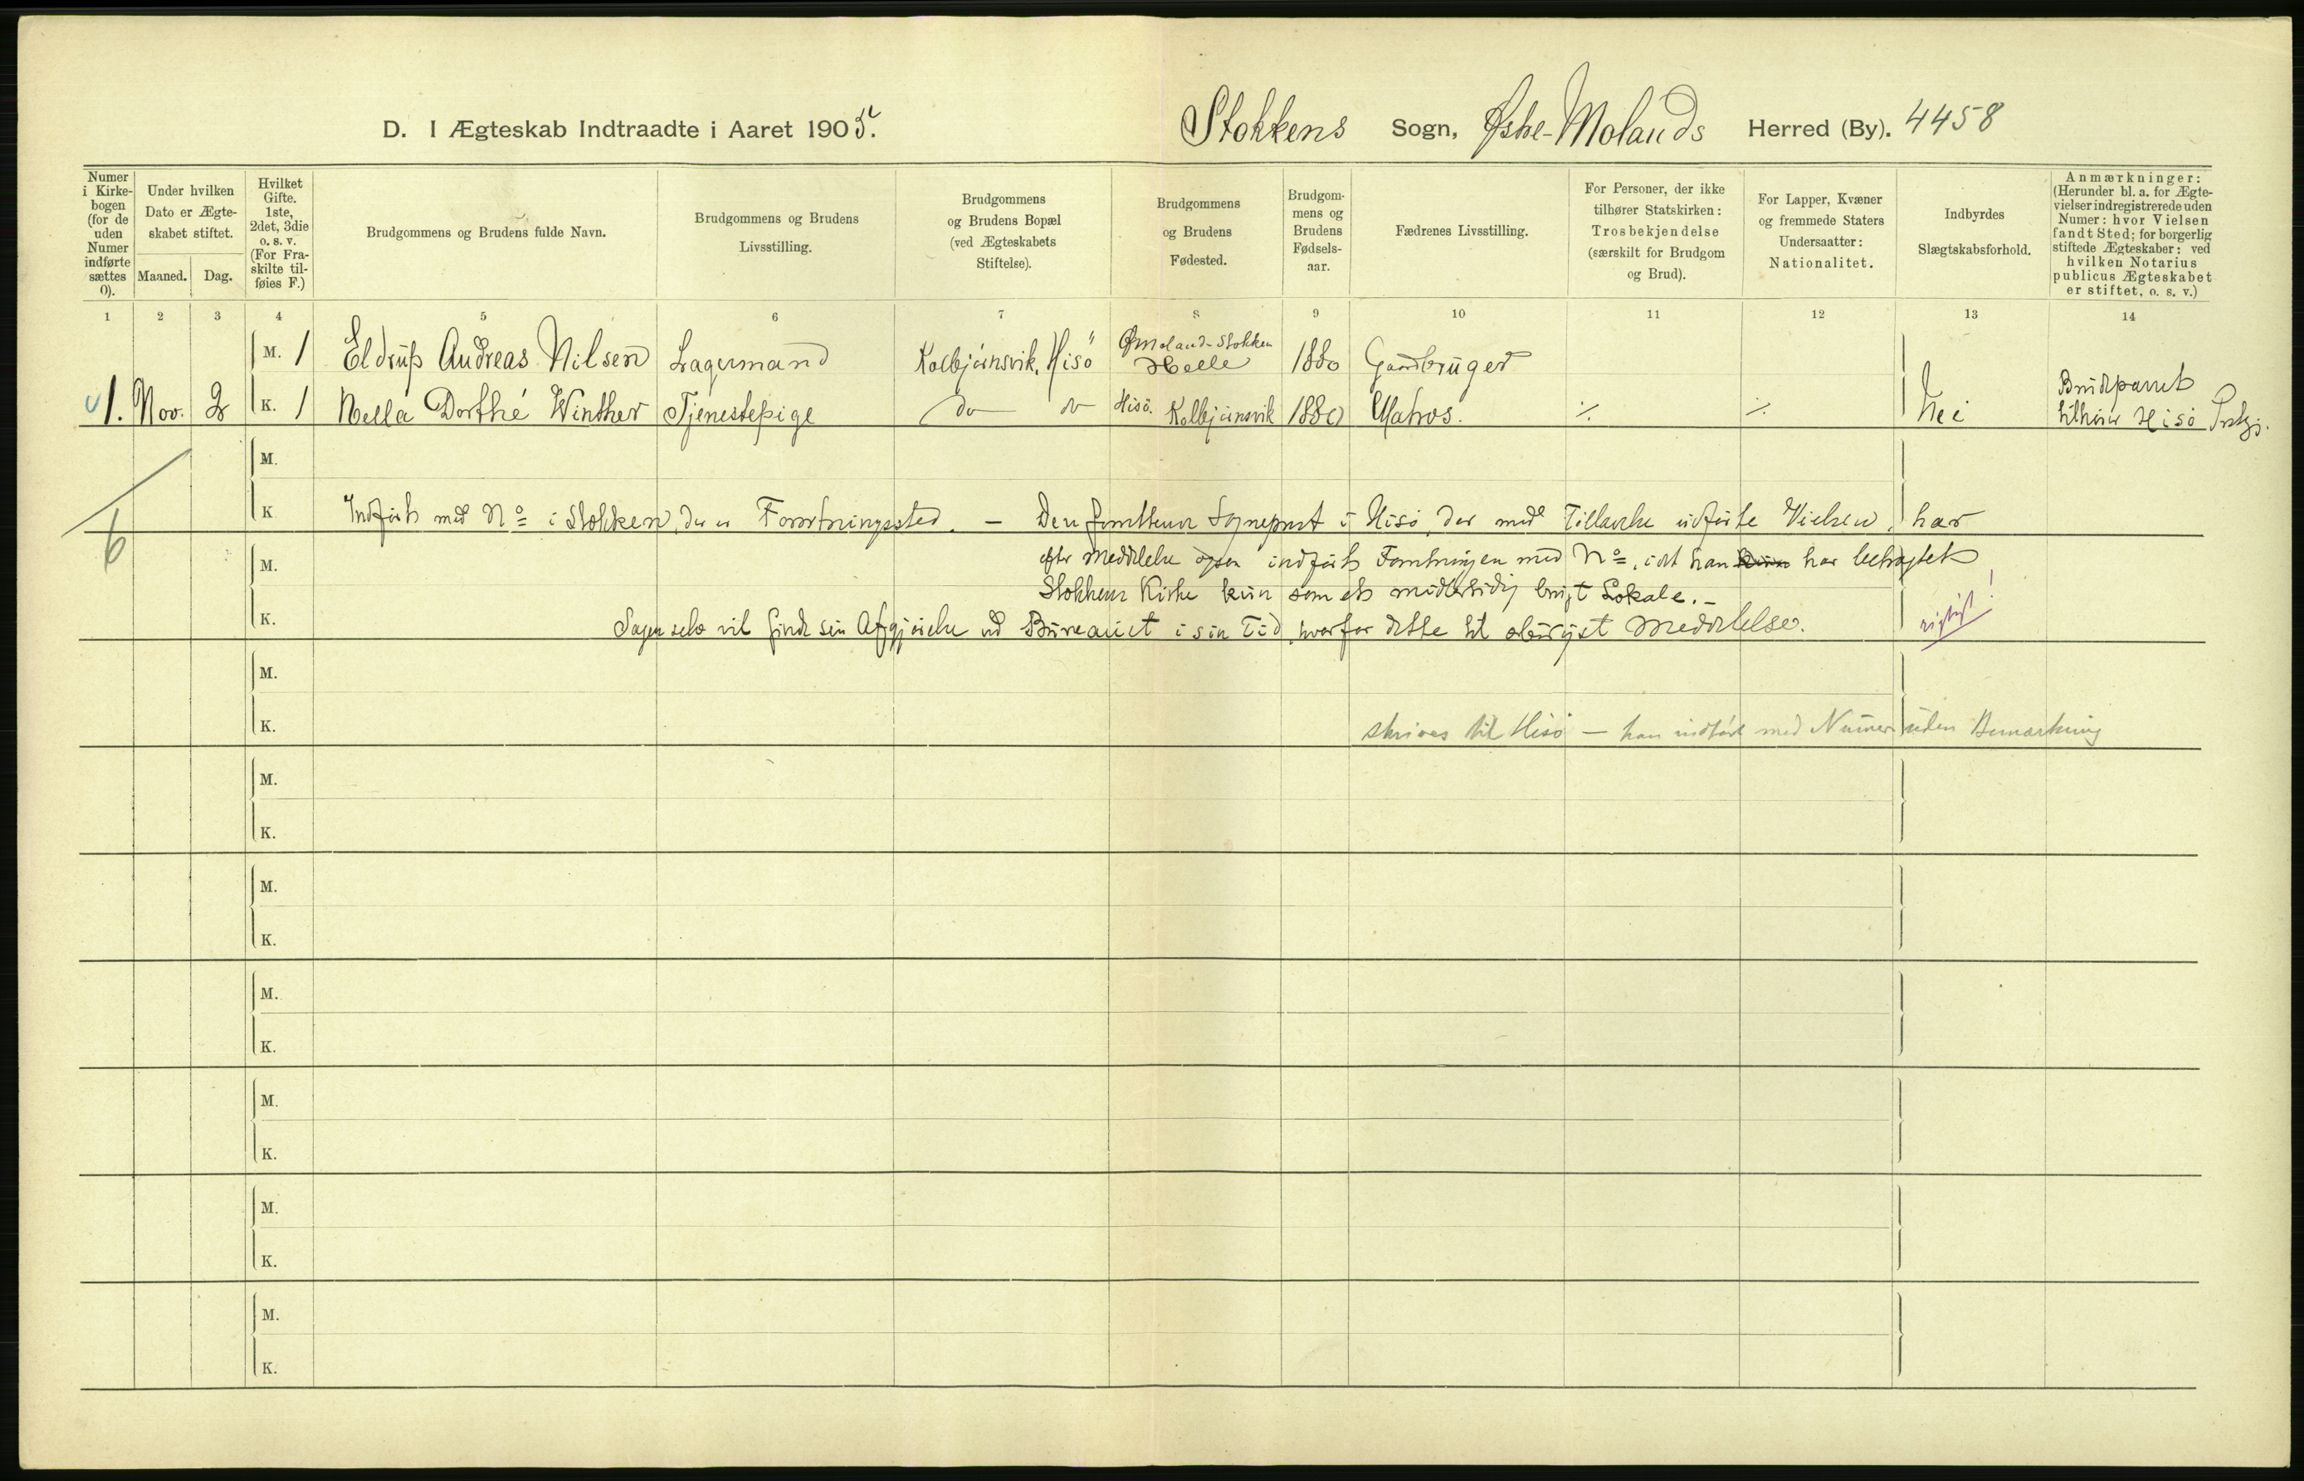 D. I Ægteskab Indtraadte i Aaret 1905.
Stokkens Sogn, Østre-Molands Herred (By). 4458
Numer i Kirkebogen (for de uden Numer indførte sættes 0).
Under hvilken Dato er Ægteskabet stiftet.
Maaned.
Dag.
Hvilket Gifte. 1ste, 2det, 3die o. s. v. (For Fraskilte tilføies F.)
Brudgommens og Brudens fulde Navn.
Brudgommens og Brudens Livsstilling.
Brudgommens og Brudens Bopæl (ved Ægteskabets Stiftelse).
Brudgommens og Brudens Fødested.
Brudgommens og Brudens Fødselsaar.
Fædrenes Livsstilling.
For Personer, der ikke tilhører Statskirken: Trosbekjendelse (særskilt for Brudgom og Brud).
For Lapper, Kvæner og fremmede Staters Undersaatter: Nationalitet.
Indbyrdes Slægtskabsforhold.
Anmærkninger: (Herunder bl. a. for Ægtevielser indregistrerede uden Numer: hvor Vielsen fandt Sted; for borgerlig stiftede Ægteskaber: ved hvilken Notarius publicus Ægteskabet er stiftet, o. s. v.)
1 2 3 4 5 6 7 8 9 10 11 12 13 14
M. 1 Eldrup Andreas Nilsen Lagermand Kolbjörnsvik, Hisö Ø Moland-Stokken Helle 1880 Gaardbruger
1. Nov. 2 K. 1 Nella Dorthé Winther Tjenestepige do do Hisö. Kolbjörnsvik 1880 Matros. ./. ./. Nei Brudparret tilhører Hisö Prstgj.
M.
6
K. Indført med No i Stokken, der er Forretningssted. — Den forrettende Sogneprest i Hisö, der med Tilladelse udførte Vielsen, har
M. efter Meddelelse ogsaa indført Forretningen med No, idet han kun har betragtet
Stokkens Kirke kun som et midlertidig brugt Lokale. —
K. Sagen selv vil finde sin Afgjörelse ved Bureauet i sin Tid, hvorfor dette til Meddelelse. rigtigt!
M.
K. skrives til Hisö — han indført med Numer uden Bemærkning
M.
K.
M.
K.
M.
K.
M.
K.
M.
K.
M.
K.